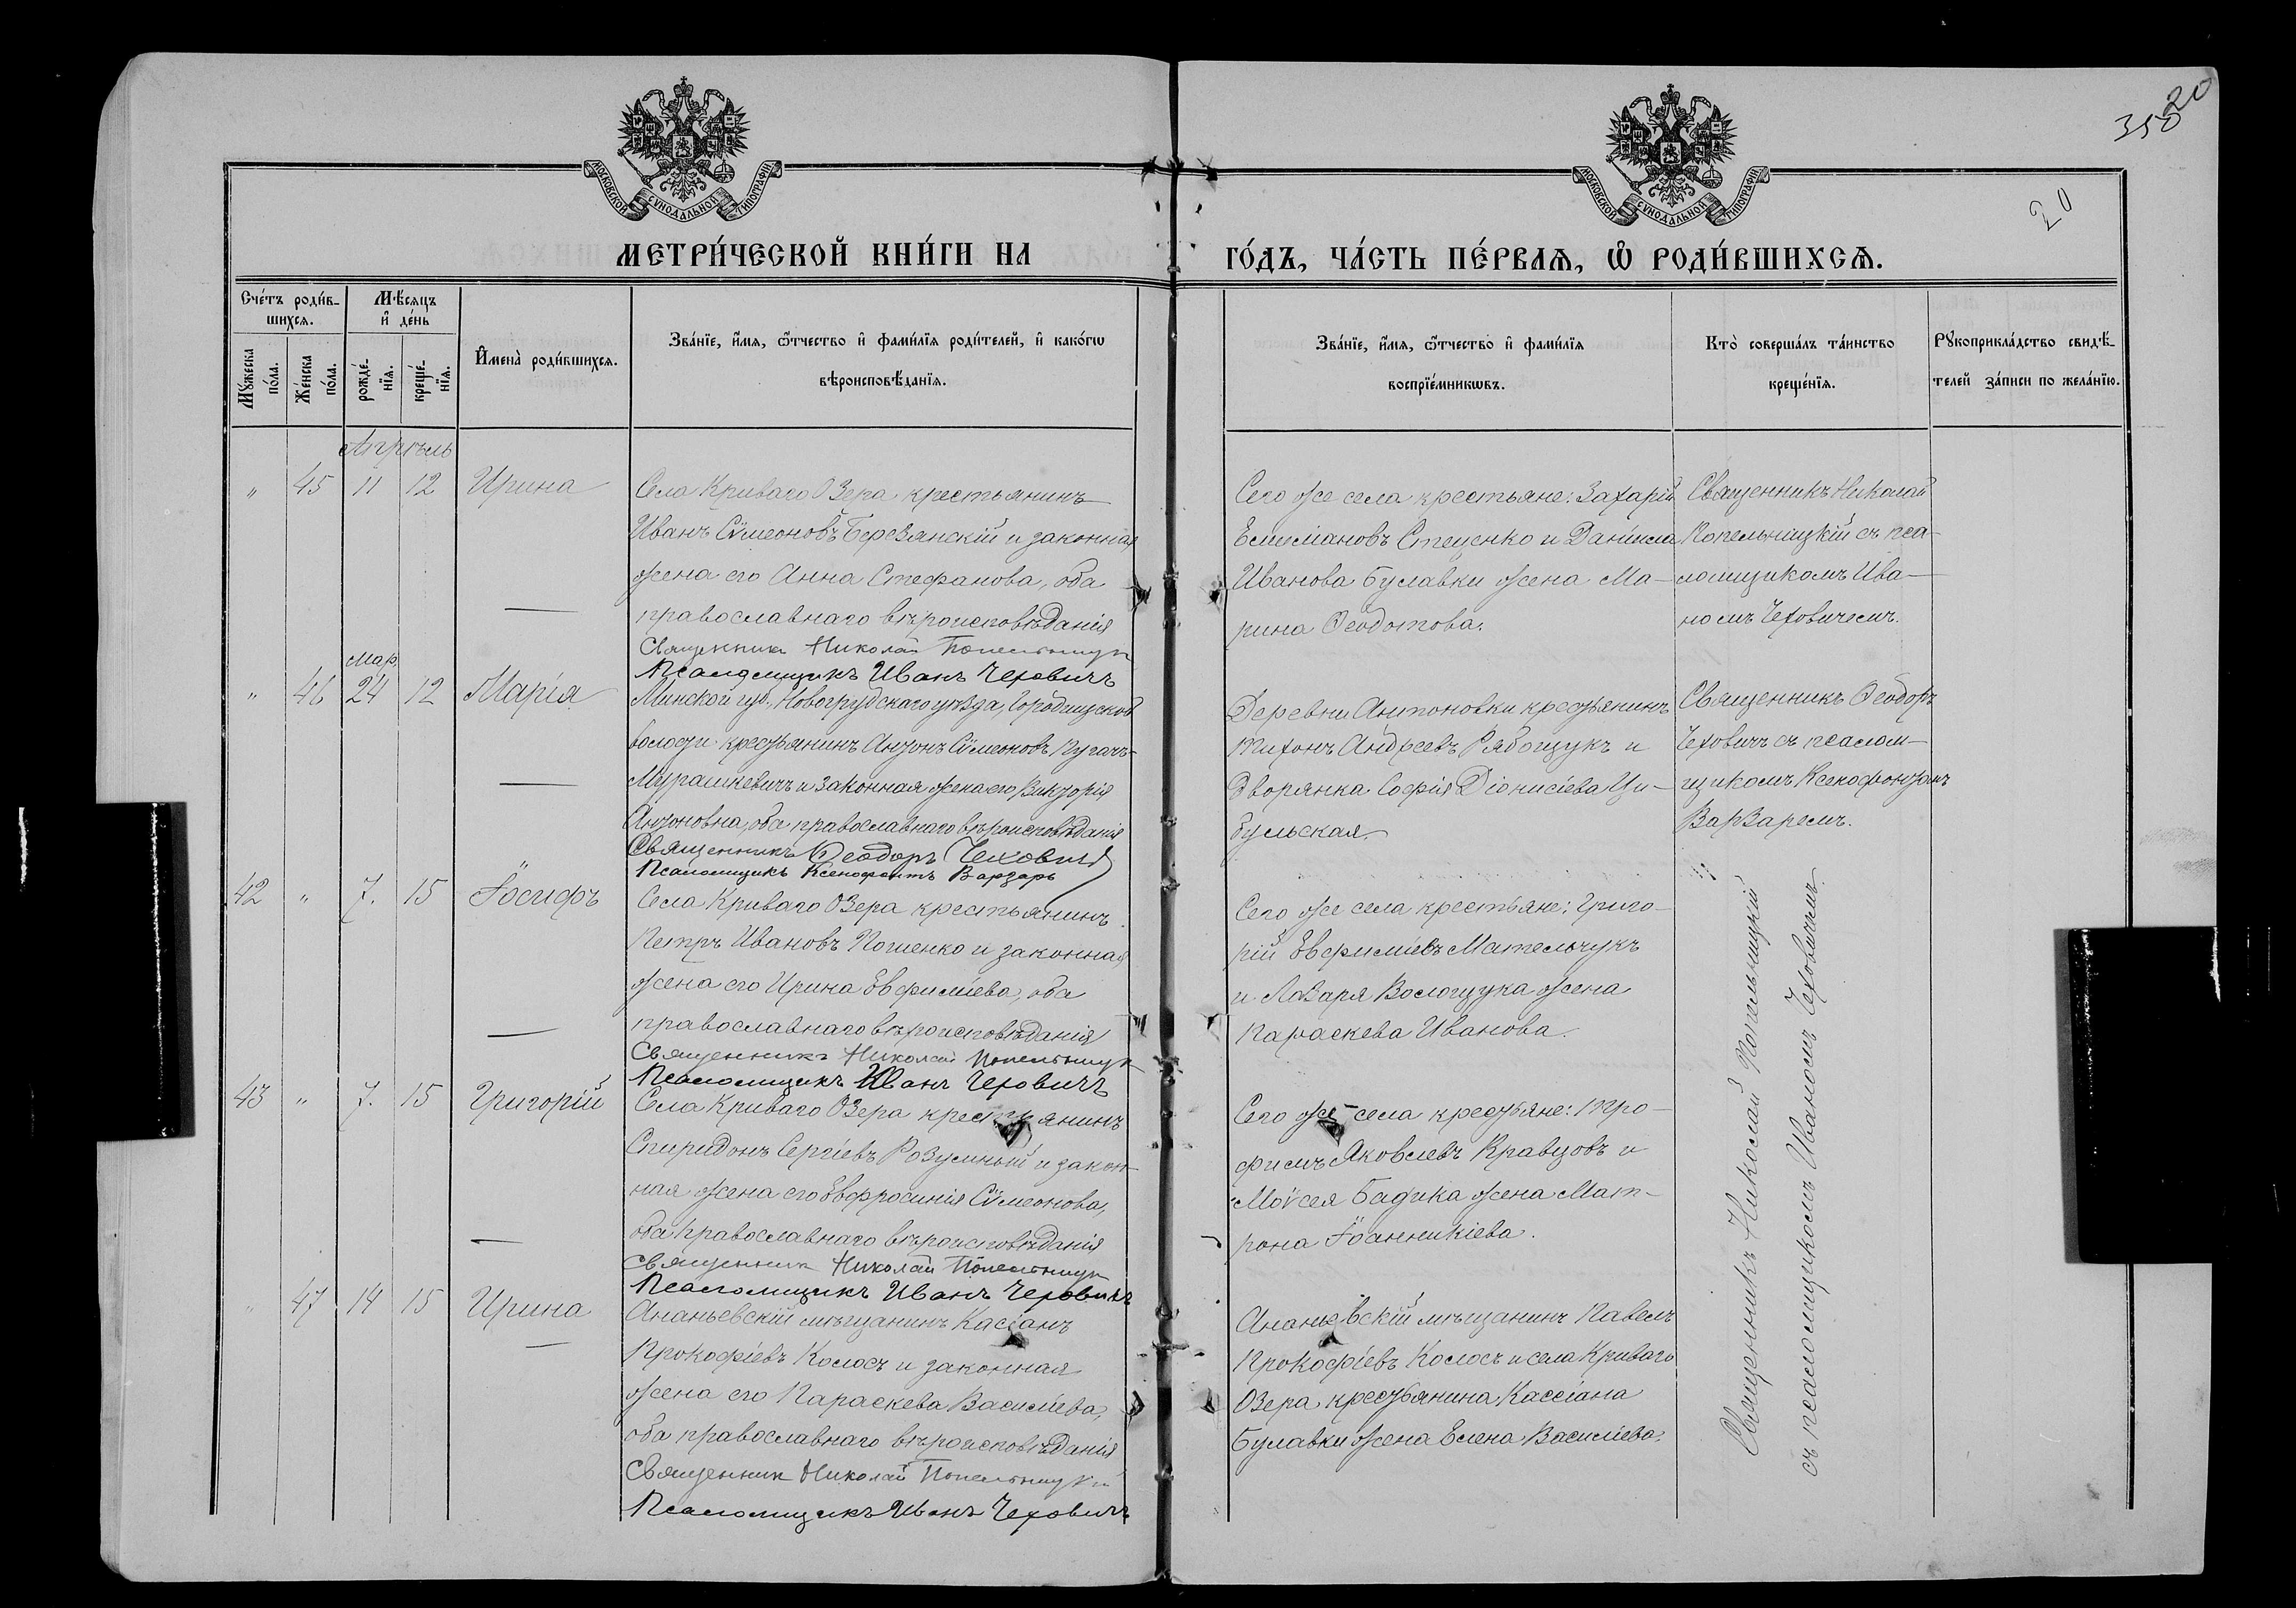 20
350
МОСКОВСКОЙ СѴНОДАЛЬНОЙ ТИПОГРАФІИ
МОСКОВСКОЙ СѴНОДАЛЬНОЙ ТИПОГРАФІИ
20
МЕТРИ́ЧЕСКОЙ КНИ́ГИ НА ГО́ДЪ, ЧА́СТЬ ПЕ́РВАѦ, Ѡ РОДИ́ВШИХСѦ.
Сче́тъ роди́в-
шихсѧ.
Мѣ́сѧцъ
и҆ де́нь
Мꙋ́жеска
по́ла.
Же́нска
по́ла.
рожде́-
нїѧ.
креще́-
нїѧ.
И҆мена̀ роди́вшихсѧ.
Зва́нїе, и҆́мѧ, ѻ҆́тчество и҆ фами́лїѧ роди́телей, и҆ како́гѡ
вѣроисповѣ́данїѧ.
Зва́нїе, и҆́мѧ, ѻ҆́тчество и҆ фами́лїѧ
воспрїе́мникѡвъ.
Кто̀ соверша́лъ та́инство
креще́нїѧ.
Рꙋкоприкла́дство свидѣ́-
телей за́писи по жела́нїю.
Апрѣль
" 45 11 12 Ирина
Села Криваго Озера крестьянинъ
Иванъ Сѵмеоновъ Березянскій и законная
жена его Анна Стефанова, оба
православнаго вѣроисповѣданія
Священникъ Николай
Псаломщикъ Иванъ Чеховичъ
Сего же села крестьяне: Захарій
Стеценко и Даніила
Иванова Булавки жена Ма-
рина Ѳеодотова.
Священникъ Николай
Попельницкій съ пса-
ломщикомъ Ива-
номъ Чеховичемъ.
Мар.
" 46 24 12 Марія
Минской губ., Новогрудскаго уѣзда, Городищской
волости крестьянинъ Антонъ Сѵмеоновъ Пугачъ-
Мурашкевичъ и законная жена его Викторія
Антоновна, оба православнаго вѣроисповѣданія
Священникъ Ѳеодоръ Чеховичъ
Псаломщикъ Ксенофонтъ Варзарь
Деревни Антоновки крестьянинъ
Тихонъ Андреевъ Рябощукъ и
дворянка Софія Діонисіева Ци-
бульская.
Священникъ Ѳеодоръ
Чеховичъ съ псалом-
щикомъ Ксенофонтомъ
Варзаремъ.
42 " 7. 15 Іосифъ
Села Криваго Озера крестьянинъ
Петръ Ивановъ и законная
жена его Ирина Евфиміева, оба
православнаго вѣроисповѣданія
Священникъ Николай
Псаломщикъ Иванъ Чеховичъ
Сего же села крестьяне: Григо-
рій Евфиміевъ Мательчукъ
и Лазаря Вологщука жена
Параскева Иванова.
43 " 7. 15 Григорій
Села Криваго Озера крестьянинъ
Спиридонъ Сергіевъ Розумный и закон-
ная жена его Евфросинія Сѵмеонова,
оба православнаго вѣроисповѣданія
Священникъ Николай
Псаломщикъ Иванъ Чеховичъ
Сего же села крестьяне: Тро-
фимъ Яковлевъ Кравцовъ и
Моѵсея Бадика жена Мат-
рона Іоанникіева.
" 47 14 15 Ирина
Ананьевскій мѣщанинъ Касіанъ
Прокофіевъ Колосъ и законная
жена его Параскева Василіева,
оба православнаго вѣроисповѣданія
Священник Николай Попельницкій
Псаломщикъ Иванъ Чеховичъ
Ананьевскій мѣщанинъ Павелъ
Прокофіевъ Колосъ и села Криваго
Озера крестьянина Кассіана
Булавки жена Елена Василіева.
Священникъ Николай Попельницкій
съ псаломщикомъ Иваномъ Чеховичемъ.